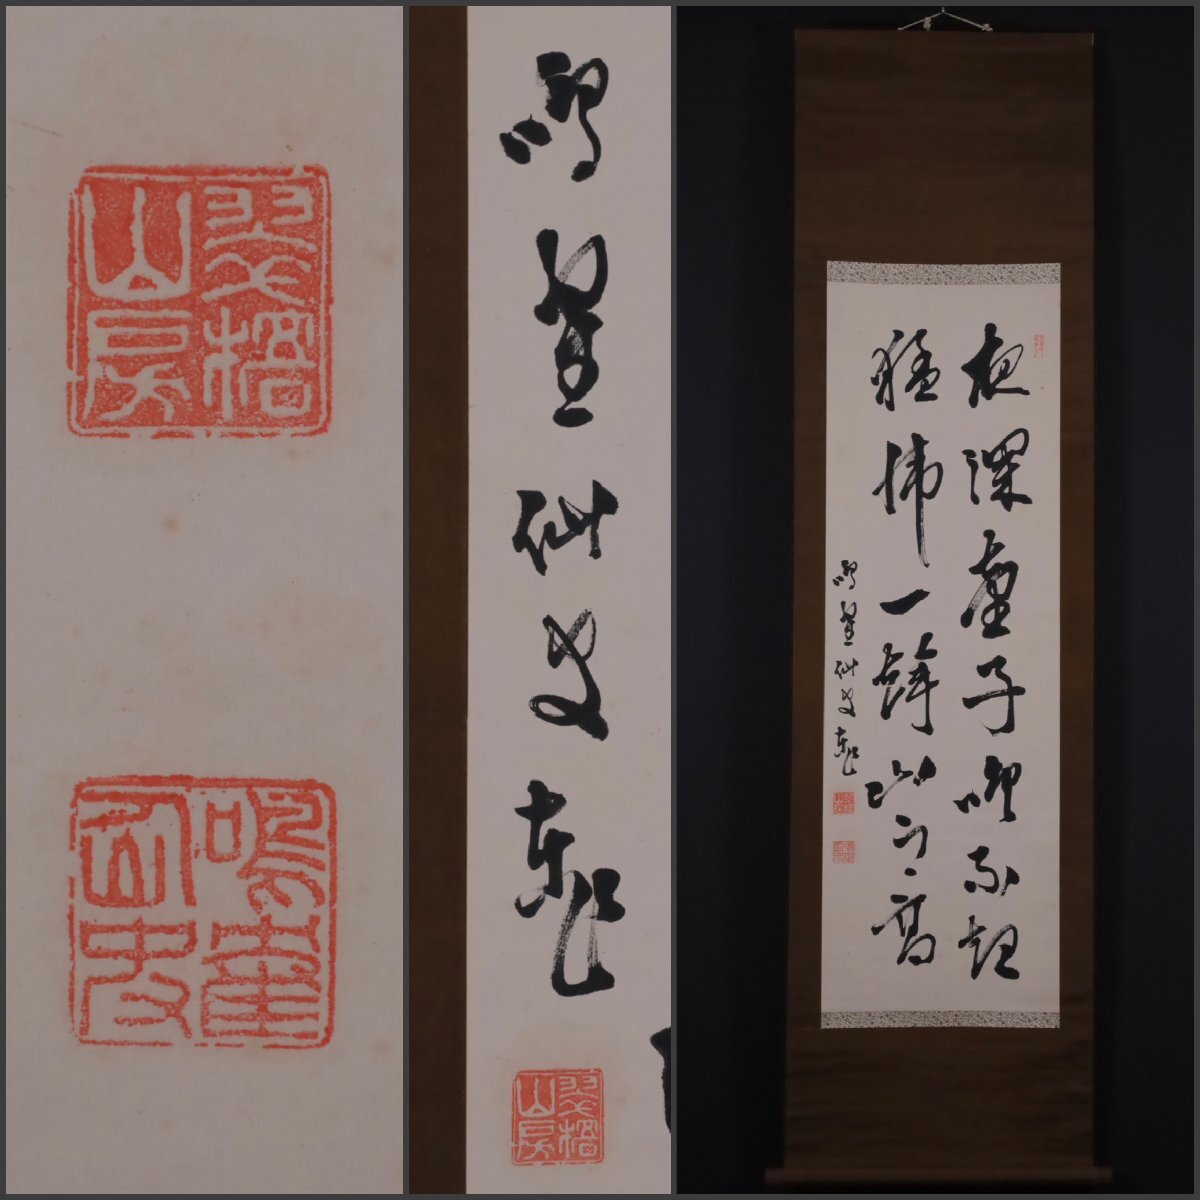 山房
鳴鶴仙史
鳴鶴仙史東作
山房
夜深童子喚不起
猛虎一聲山月高
鳴鶴仙史東作